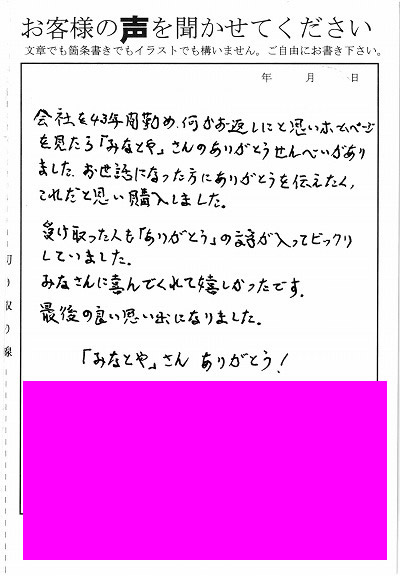 お客様の声を聞かせてください
文章でも箇条書きでもイラストでも構いません。ご自由にお書き下さい。
年　月　日
会社を43年間勤め、何かお返しにと思いホームページ
を見たら「みなとや」さんのありがとうせんべいがあり
ました。お世話になった方にありがとうを伝えたく、
これだと思い購入しました。
受け取った人も「ありがとう」の文字が入ってビックリ
していました。
みなさんに喜んでくれて嬉しかったです。
最後の良い思い出になりました。
「みなとや」さん ありがとう！
切り取り線